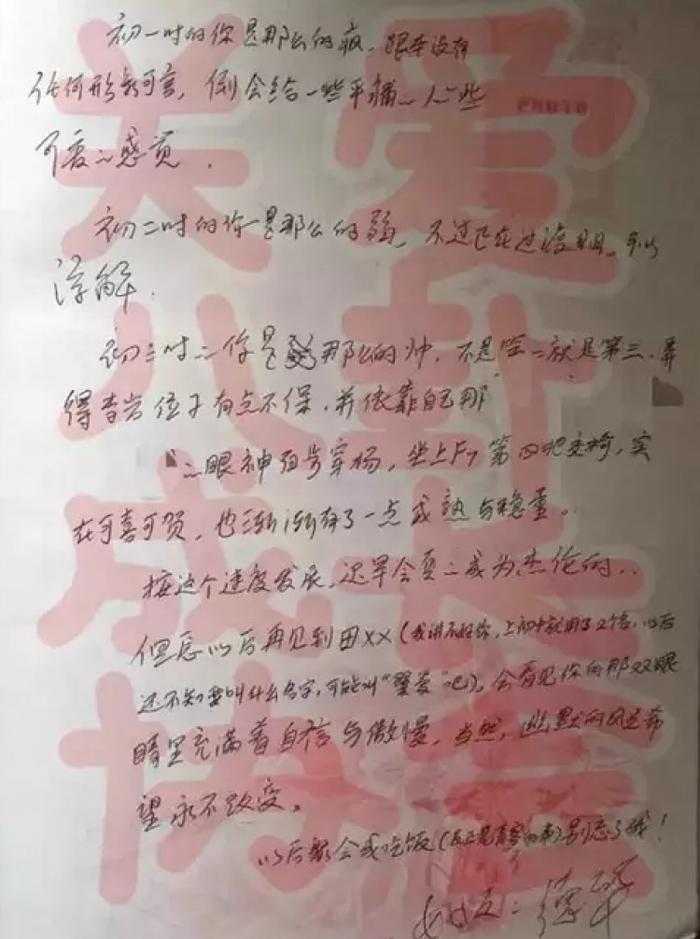 初一时的你是那么的疯，跟本没有
任何形象可言，倒会给一些平铺的人一些
可爱的感觉．
初二时的你是那么的弱，不过已在过渡期，可以
谅解．
初三时的你是那么的帅，不是第二就是第三，弄
得李岩位子有点不保，并依靠自己那
的眼神 穿杨，坐上F7第四把交椅，实
在可喜可贺，也渐渐有了一点成熟与稳重。
按这个速度发展，迟早会真的成为杰伦的．．
但愿以后再见到田XX（我讲不好你，上初中就用了2个名，以后
还不知要叫什么名字，可能叫“ ”吧），会看见你的那双眼
睛里充满着自信与傲慢，当然，幽默的风范希
望永不改变。
以后聚会或吃饭（反正是有客的事）别忘了我！
好友：
关爱
八卦
成长
协会